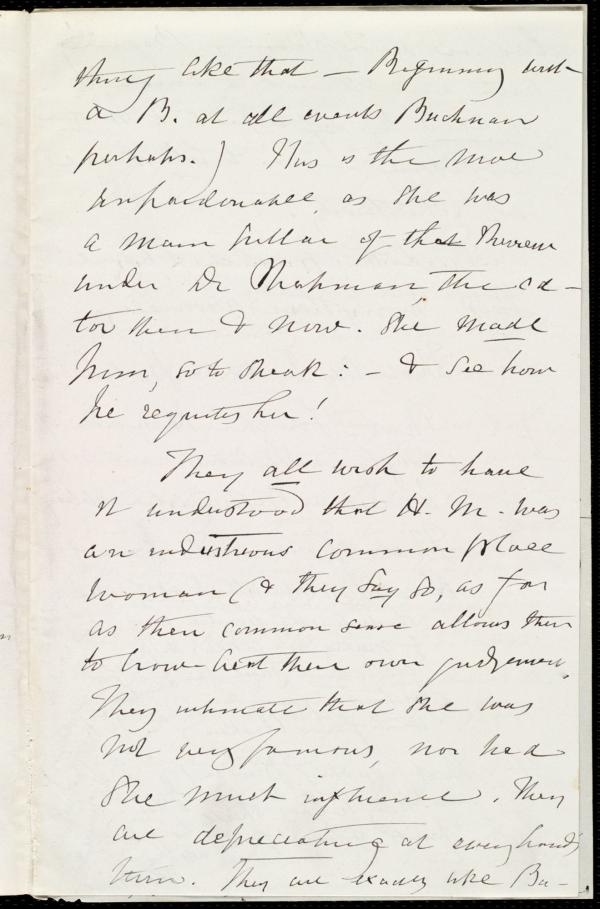 thing like that — Beginning with
a B. at all events Buchanan
perhaps.) This is the more
unpardonable, as she was
a main pillar of that Review
under Dr Chapman, the edi-
tor then & now. She made
him, so to speak: — & see how
he requites her!
They all wish to have
it understood that H. M. was
an industrious common place
woman (& they say so, as far
as their common sense allows them
to their own judgement.
They intimate that she was
not very famous, nor had
she much influence. They
are depreciating at every hand's
turn. They are exactly like Ba-